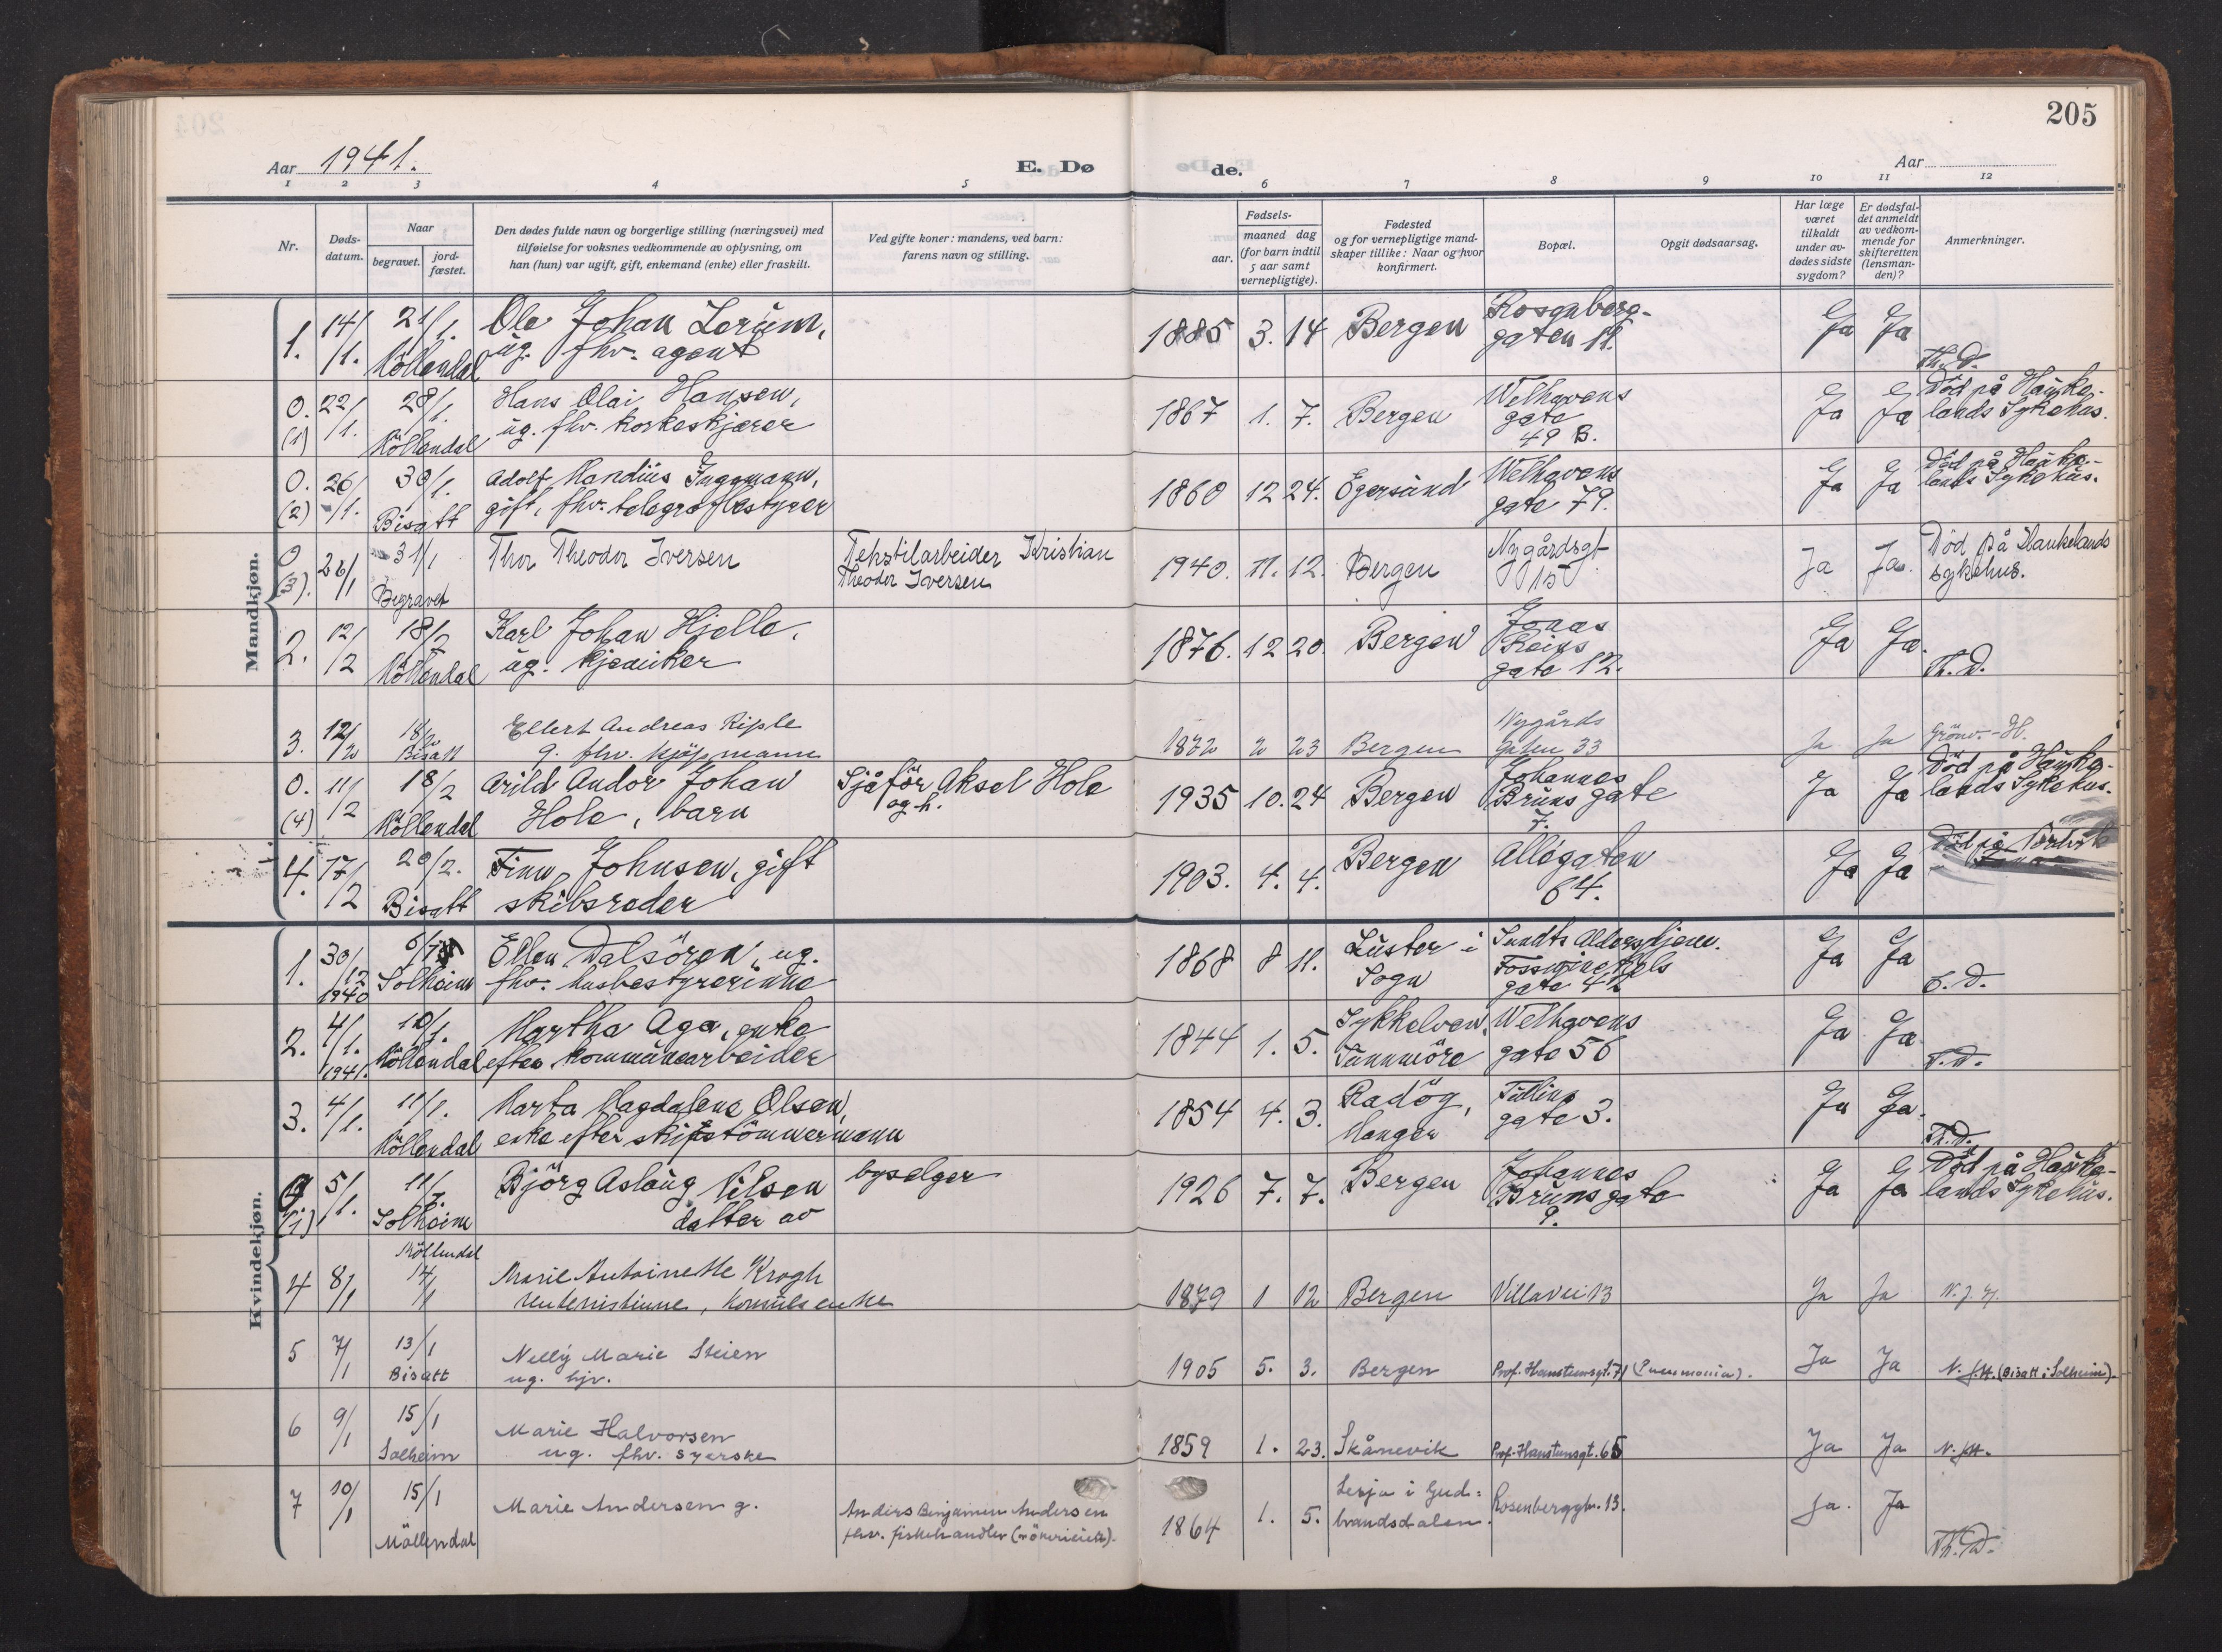 205
Aar 1941.
E. Dø
de.
Aar
1 2 3 4 5 6 7 8 9 10 11 12
Nr.
Døds-
datum.
Naar
begravet.
jord-
fæstet.
Den dødes fulde navn og borgerlige stilling (næringsvei) med
tilføielse for voksnes vedkommende av oplysning, om
han (hun) var ugift, gift, enkemand (enke) eller fraskilt.
Ved gifte koner: mandens, ved barn:
farens navn og stilling.
Fødsels-
aar.
maaned dag
(for barn indtil
5 aar samt
vernepligtige).
Fødested
og for vernepligtige mand-
skaper tillike: Naar og hvor
konfirmert.
Bopæl.
Opgit dødsaarsag.
Har læge
været
tilkaldt
under av-
dødes sidste
sygdom?
Er dødsfal-
det anmeldt
av vedkom-
mende for
skifteretten
(lensman-
den)?
Anmerkninger.
Mandkjøn.
1. 14/1. 21/1. Ole Johan Lerüm, 1885 3. 14 Bergen Rosenberg- Ja Ja
Möllendal ug. fhv. agent gaten 11. Th. D.
0. 22/1. 28/1. Hans Olai Hansen, 1867 1. 7. Bergen Welhavens Ja Ja Död på Hauke-
(1) Möllendal ug. fhv. korkeskjærer gate lands Sykehus.
49 B.
0. 26/1. 30/1. Adolf 1860 12 24. Egersund Welhavens Ja Ja Död på Hauke-
(2) Bisatt gift, fhv. telegrafbestyrer gate 79. lands Sykehus.
0 26/1 31/1 Thor Theodor Iversen Tekstilarbeider Kristian 1940. 11. 12. Bergen Nygårdsgt. Ja Ja. Död på Haukelands
(3). Begravet Theodor Iversen 15 sykehus.
2. 12/2 18/2 Karl Johan Hjelle, 1876. 12 20. Bergen Jonas Ja Ja.
Möllendal ug. Reins
gate 12. Th. D.
3. 12/2 18/2 Ellert Andreas Riple 1872 2 23 Bergen Nygårds Ja Ja
Bisatt g. fhv. kjøpmann gaten 33
0. 11/2 18/2 Arild Andor Johan Sjåför Aksel Hole 1935 10. 24 Bergen Johannes Ja Ja Död på Hauke-
(4) Möllendal Hole, barn og h. Bruns gate lands Sykehus.
7.
4. 17/2 20/2. Finn Johnsen, gift 1903. 4. 4. Bergen Allégaten Ja Ja Död på
Bisatt skibsreder 64.
Kvindekjøn.
1. 30/12 Ellen Dalsören, ug. 1868 8 11. Luster i Sundts Aldershjem. Ja Ja
1940 Solheim fhv. husbestyrerinne Sogn Fosswinckels
gate 42 S. D.
2. 4/1. 10/1. Martha Aga, enke 1844 1. 5. Sykkelven, Welhavens Ja Ja
1941. Möllendal efter kommunearbeider Sunnmöre gate 56
3. 4/1. 11/1. Marta Magdalene Olsen, 1854 4. 3. Radöy, Tullins Ja Ja.
Möllendal enke efter skipstömmermann Manger gate 3. Th. D.
0 5/1. 11/1. Björg Aslaug Nilsen byselger 1926 7. 7. Bergen Johannes Ja Ja Död på Hauke-
(1) Solheim datter av Bruns gate lands Sykehus.
9.
Möllendal
4 8/1 14/1 Marie Antoinette Krogh 1879 1 12 Bergen Villavei 13 Ja Ja
rentenistinne, konsuls enke
5 7/1 13/1 Nelly Marie Steien 1905 5. 3. Bergen Prof. Hansteensgt. 71 (Pneumonia). Ja Ja N. J.H. (Bisatt i Solheim).
Bisatt ug. hjv.
6 9/1 15/1 Marie Halvorsen 1859 1. 23. Skånevik Prof. Hansteensgt. 65 Ja Ja N. JH.
Solheim ug. fhv. syerske
7 10/1 15/1 Marie Andersen g. Anders Benjamin Andersen 1864 1. 5. Lesja i Gud- Rosenberggtn. 13. Ja. Ja
Möllendal fhv. fiskehandler brandsdalen. Th. D.